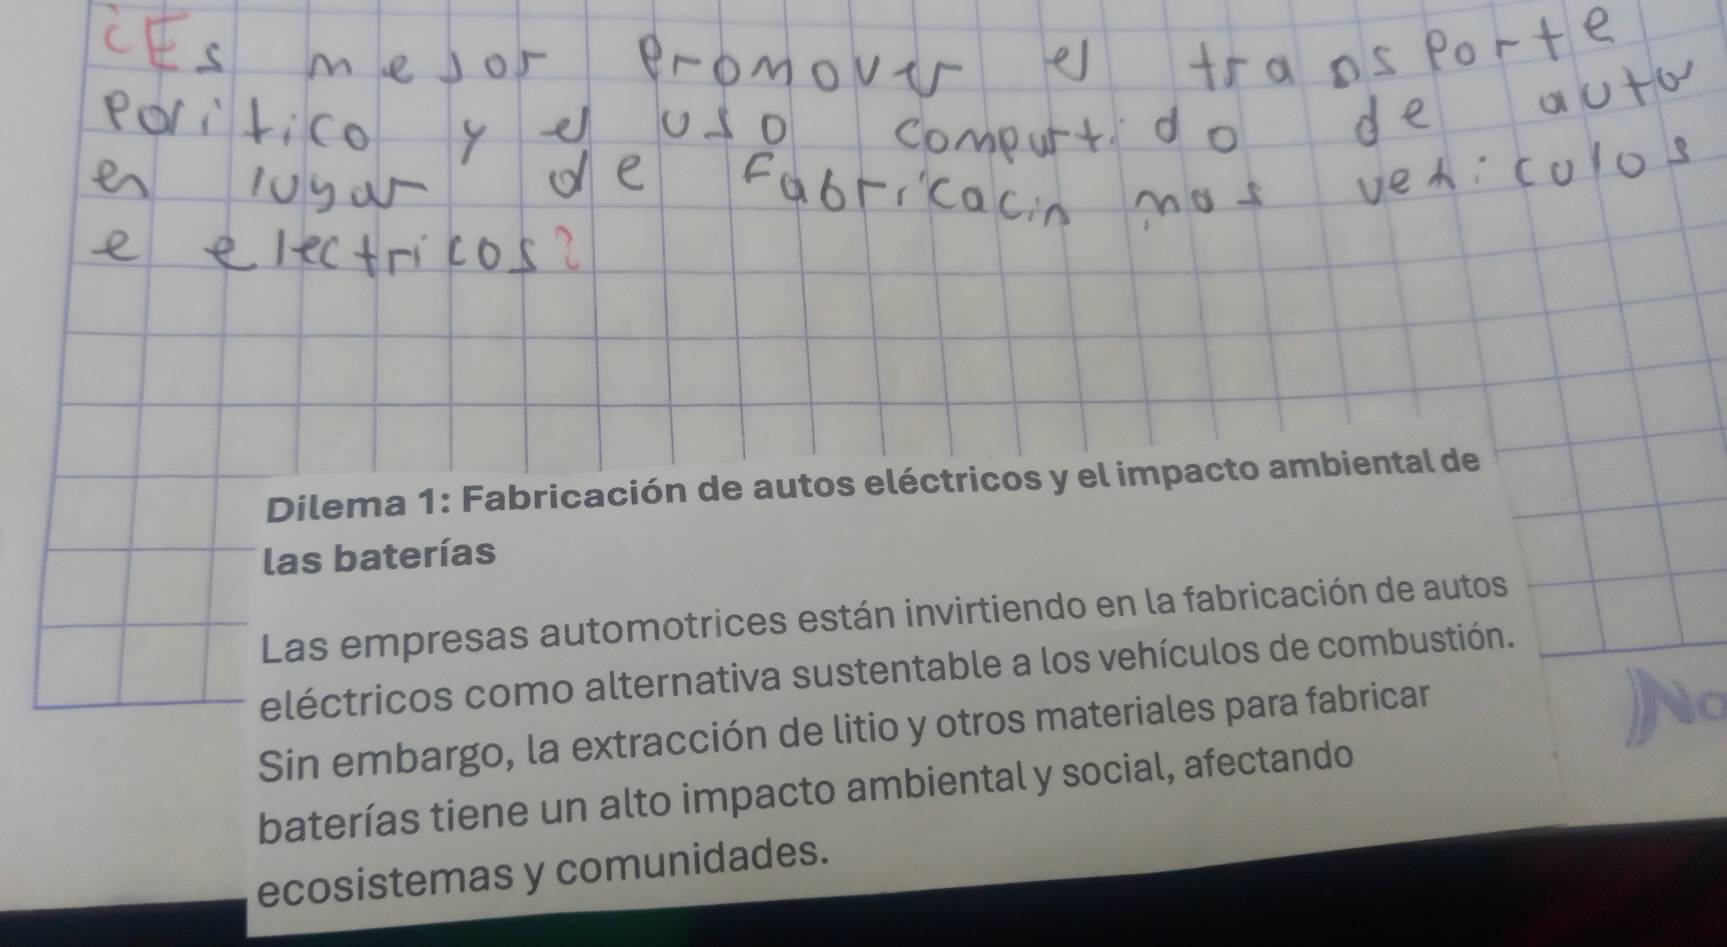 ¿Es mejor promover el transporte
poritico y el uso compartido de auto
en lugar de Fabricacin mas vehiculos
e electricos?
Dilema 1: Fabricación de autos eléctricos y el impacto ambiental de
las baterías
Las empresas automotrices están invirtiendo en la fabricación de autos
eléctricos como alternativa sustentable a los vehículos de combustión.
Sin embargo, la extracción de litio y otros materiales para fabricar
baterías tiene un alto impacto ambiental y social, afectando
ecosistemas y comunidades.
No